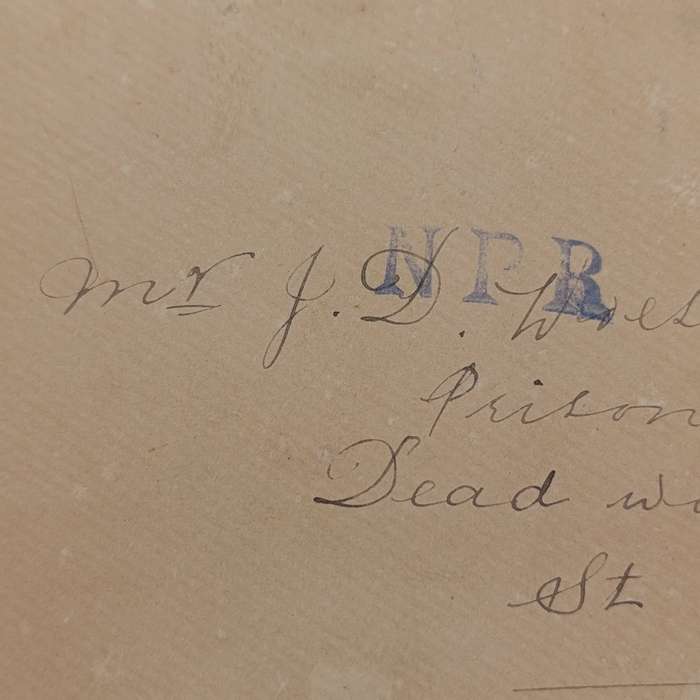 NPR
Mr J. D. Woes
Prison
Dead wo
St